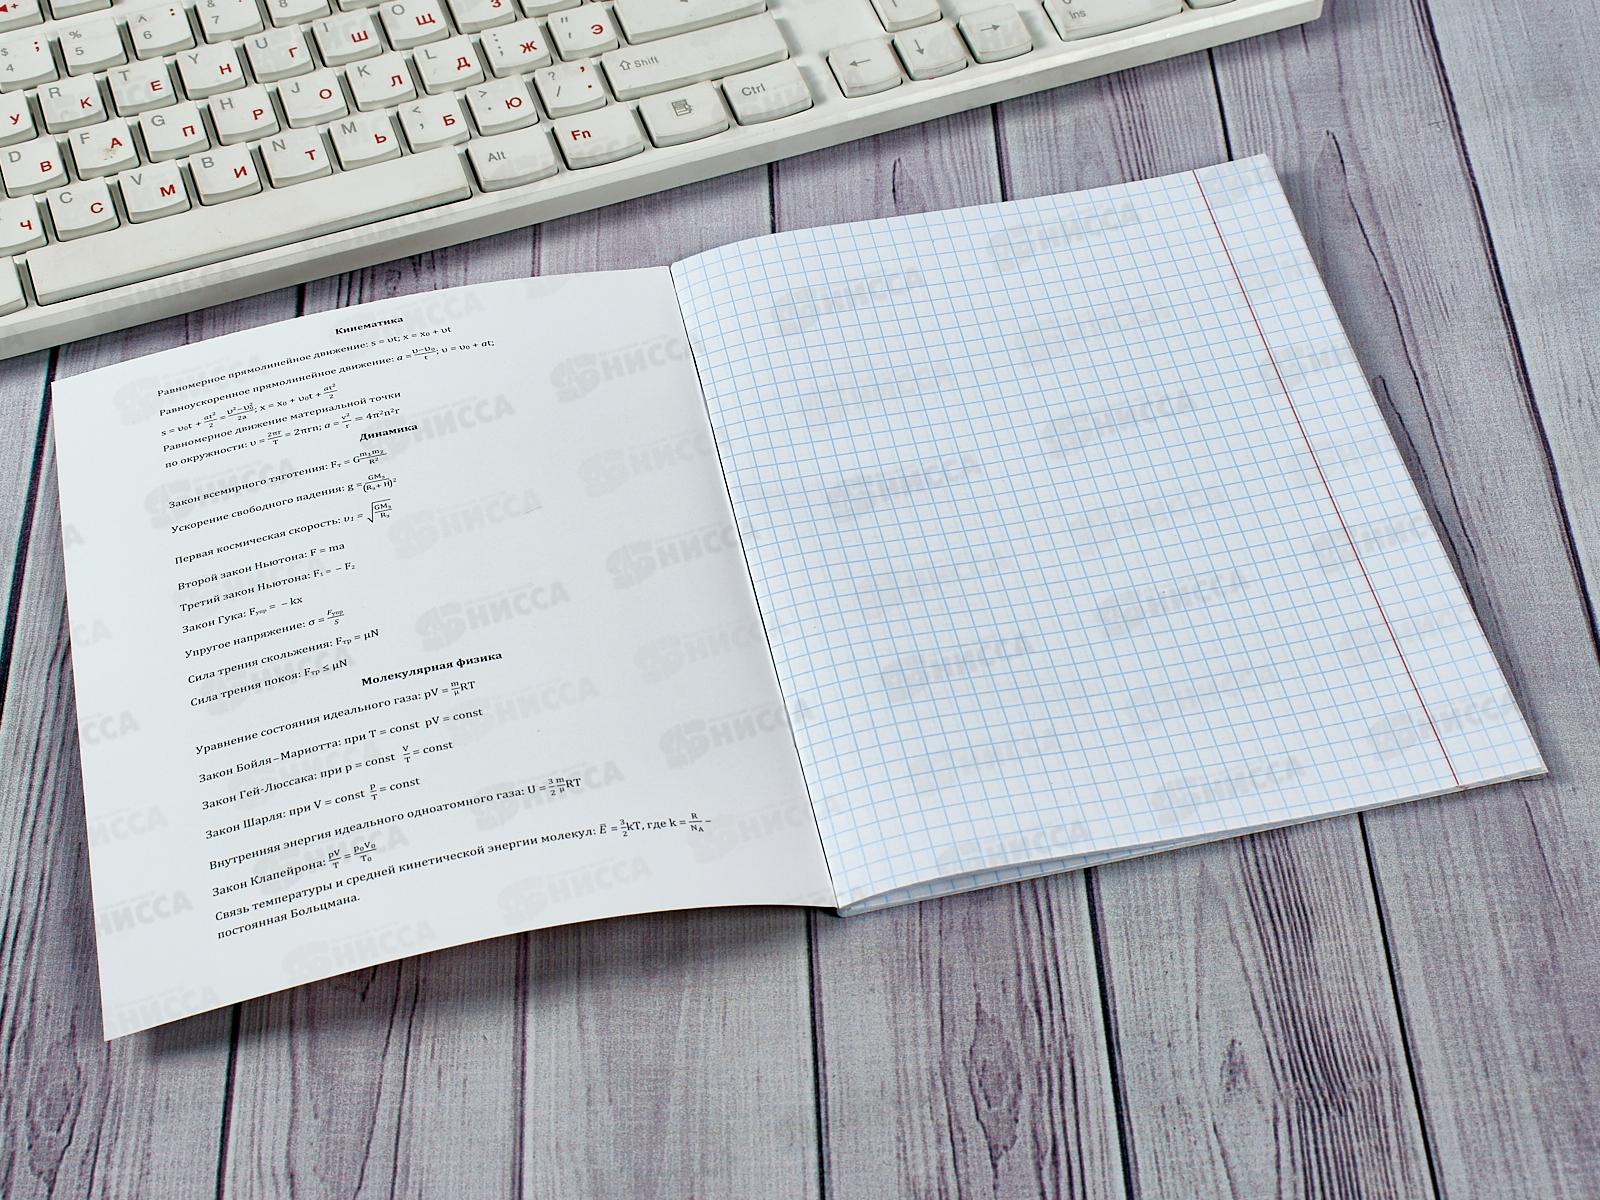 Кинематика
Равномерное прямолинейное движение: s = υt; x = x₀ + υt
Равноускоренное прямолинейное движение: a = (υ−υ₀)/t; υ = υ₀ + at;
s = υ₀t + at²/2 = (υ²−υ₀²)/2a; x = x₀ + υ₀t + at²/2
Равномерное движение материальной точки
по окружности: υ = 2πr/T = 2πrn; a = v²/r = 4π²n²r
Динамика
Закон всемирного тяготения: Fт = G m₁m₂/R²
Ускорение свободного падения: g = GMз/(Rз+H)²
Первая космическая скорость: υ₁ = √(GMз/Rз)
Второй закон Ньютона: F = ma
Третий закон Ньютона: F₁ = − F₂
Закон Гука: Fупр = − kx
Упругое напряжение: σ = Fупр/S
Сила трения скольжения: Fтр = μN
Сила трения покоя: Fтр ≤ μN
Молекулярная физика
Уравнение состояния идеального газа: pV = m/μ RT
Закон Бойля–Мариотта: при T = const pV = const
Закон Гей-Люссака: при p = const V/T = const
Закон Шарля: при V = const p/T = const
Внутренняя энергия идеального одноатомного газа: U = 3/2 m/μ RT
Закон Клапейрона: pV/T = p₀V₀/T₀
Связь температуры и средней кинетической энергии молекул: E̅ = 3/2 kT, где k = R/N_A –
постоянная Больцмана.
НИССА
Shift
Ctrl
Alt
Fn
Ins